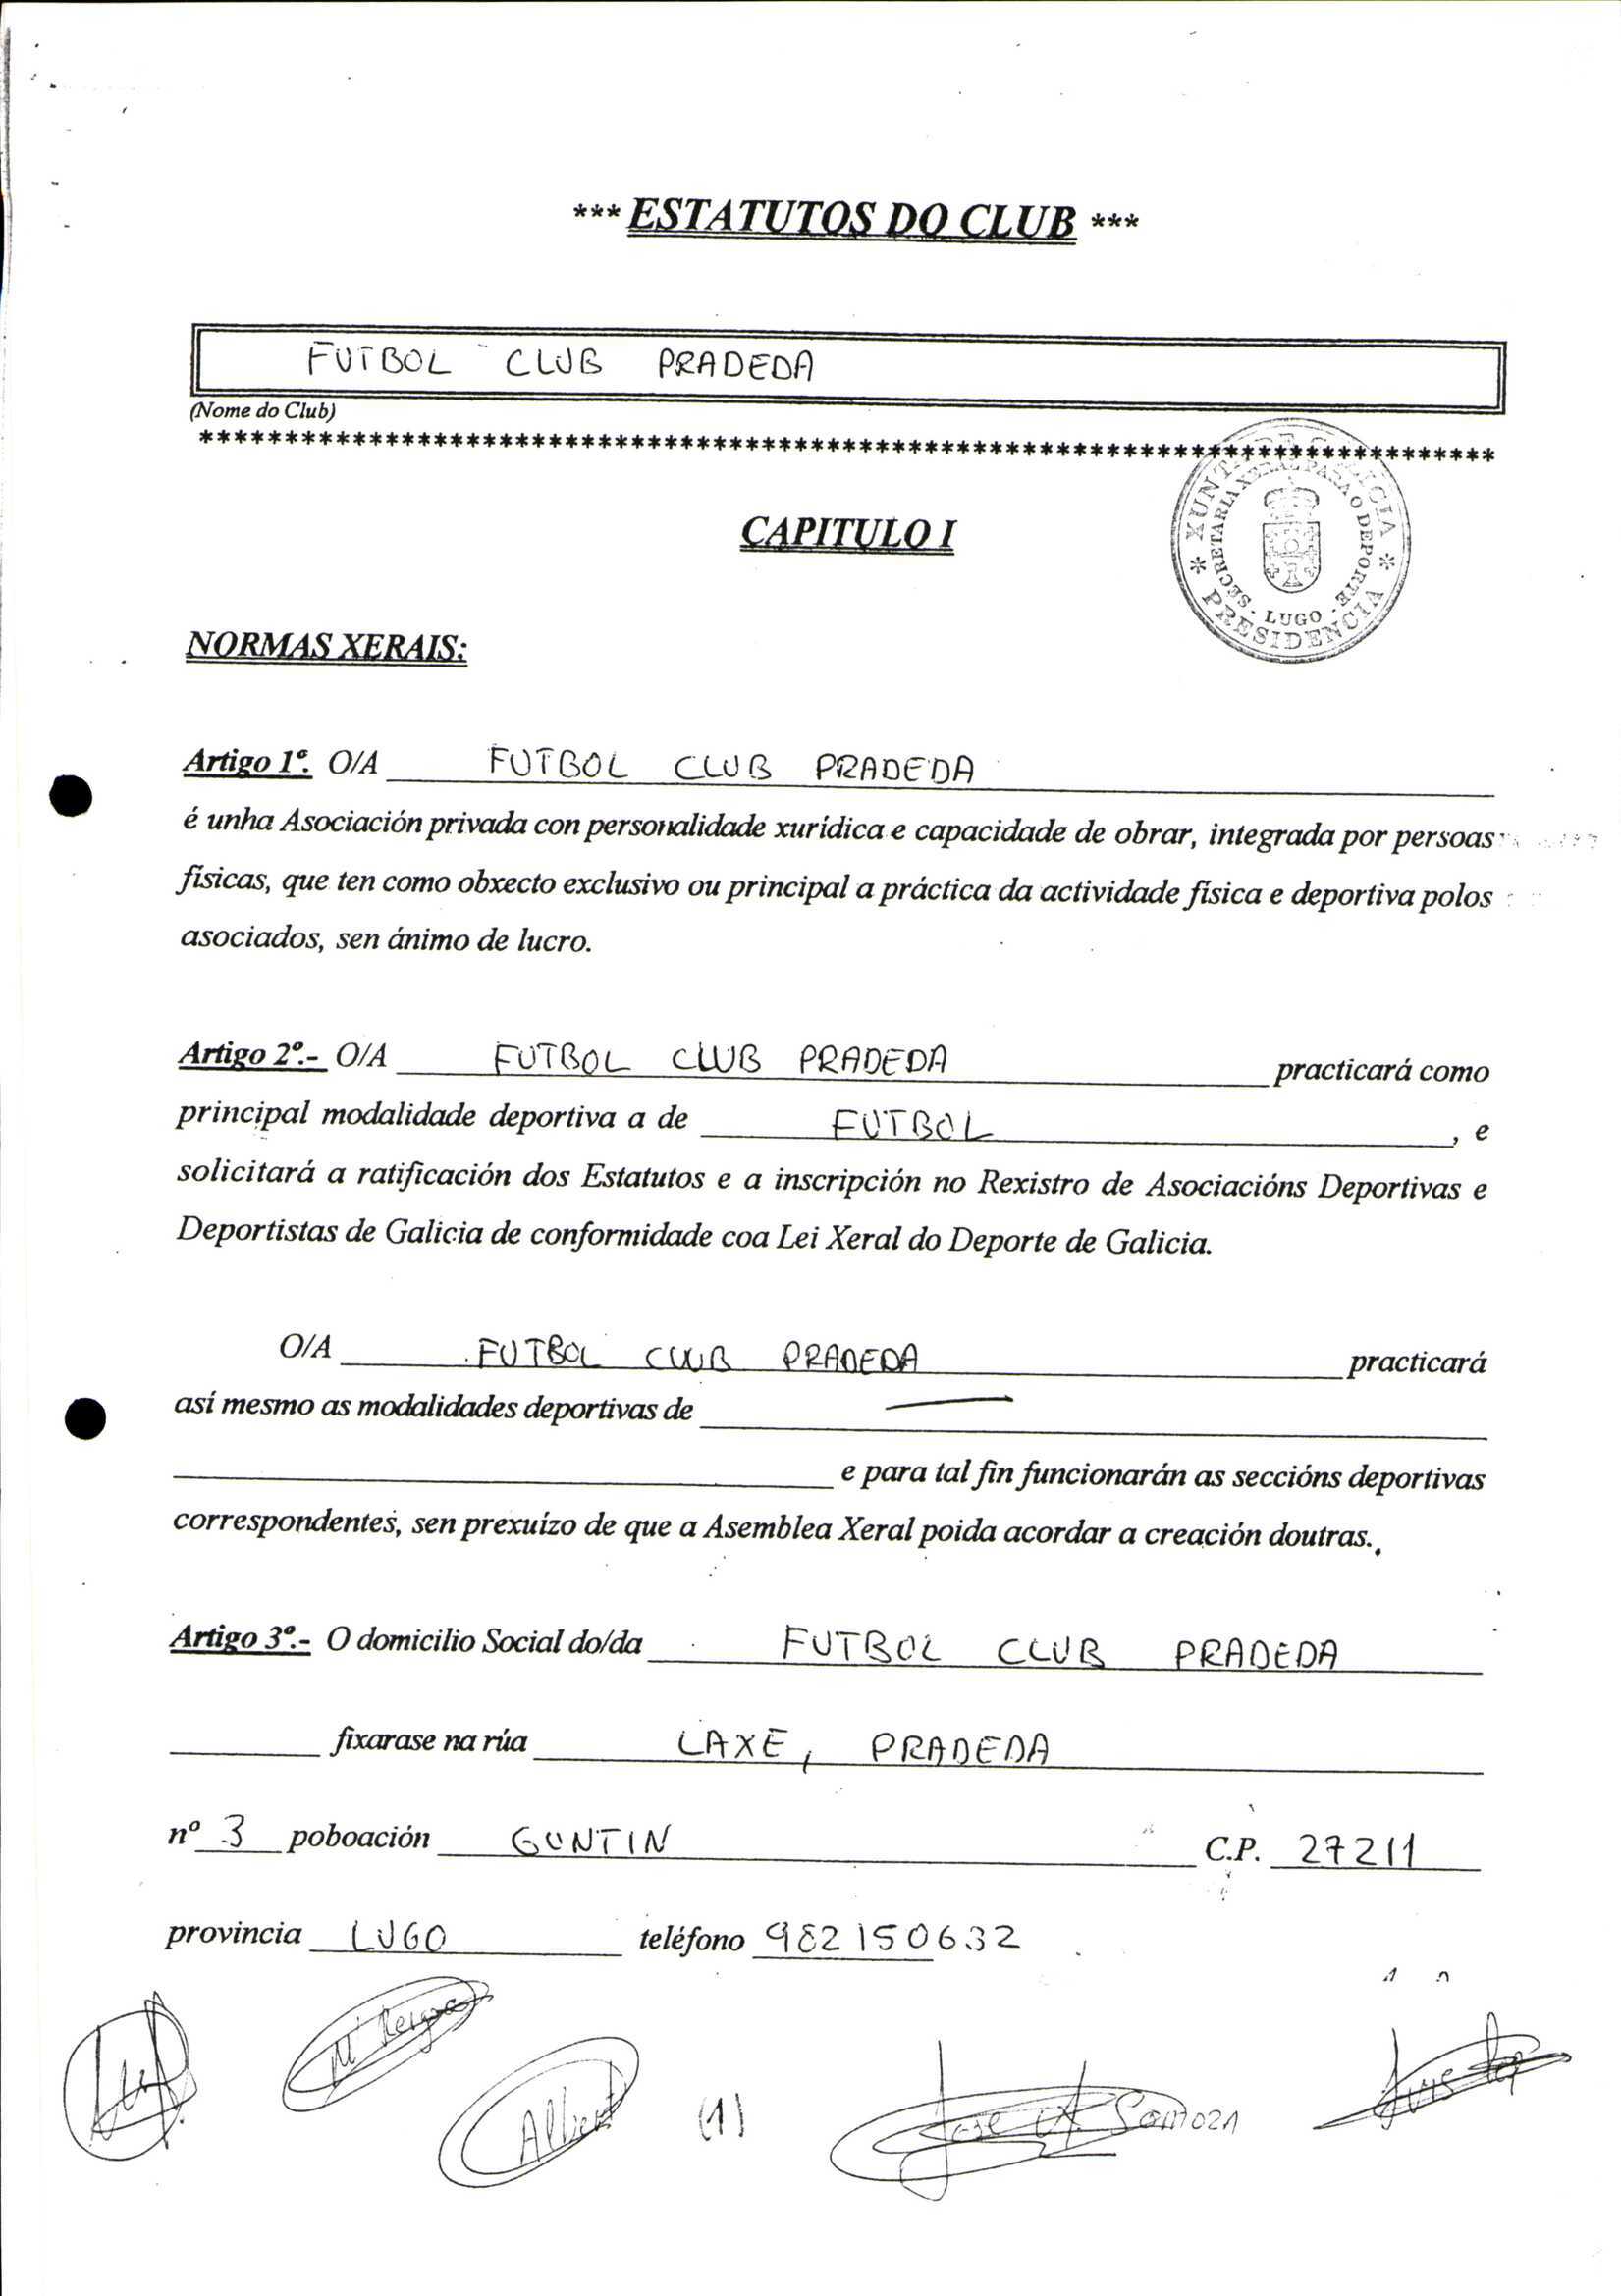 *** ESTATUTOS DO CLUB ***
FUTBOL CLUB PRADEDA
(Nome do Club)
****************************************************************************
XUNTA DE GALICIA
SECRETARIA XERAL PARA O DEPORTE
- LUGO -
* PRESIDENCIA *
CAPITULO I
NORMAS XERAIS:
Artigo 1º. O/A FUTBOL CLUB PRADEDA
é unha Asociación privada con personalidade xurídica e capacidade de obrar, integrada por persoas
físicas, que ten como obxecto exclusivo ou principal a práctica da actividade física e deportiva polos
asociados, sen ánimo de lucro.
Artigo 2º.- O/A FUTBOL CLUB PRADEDA practicará como
principal modalidade deportiva a de FUTBOL, e
solicitará a ratificación dos Estatutos e a inscripción no Rexistro de Asociacións Deportivas e
Deportistas de Galicia de conformidade coa Lei Xeral do Deporte de Galicia.
O/A FUTBOL CLUB PRADEDA practicará
así mesmo as modalidades deportivas de —
e para tal fin funcionarán as seccións deportivas
correspondentes, sen prexuízo de que a Asemblea Xeral poida acordar a creación doutras.
Artigo 3º.- O domicilio Social do/da FUTBOL CLUB PRADEDA
fixarase na rúa LAXE, PRADEDA
nº 3 poboación GUNTIN C.P. 27211
provincia LUGO teléfono 982150632
Albert (1) Jose A. Somoza